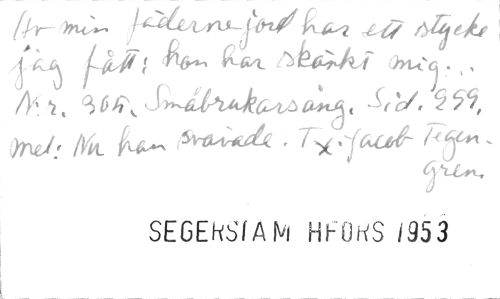 Av min fäderne jord har ett stycke
jag fått; han har skänkt mig...
N:r. 305. Småbrukarsång. Sid. 299.
mel: Nu han svävade. T x. Jacob Tegen-
gren.
SEGERSTAM HFORS 1953